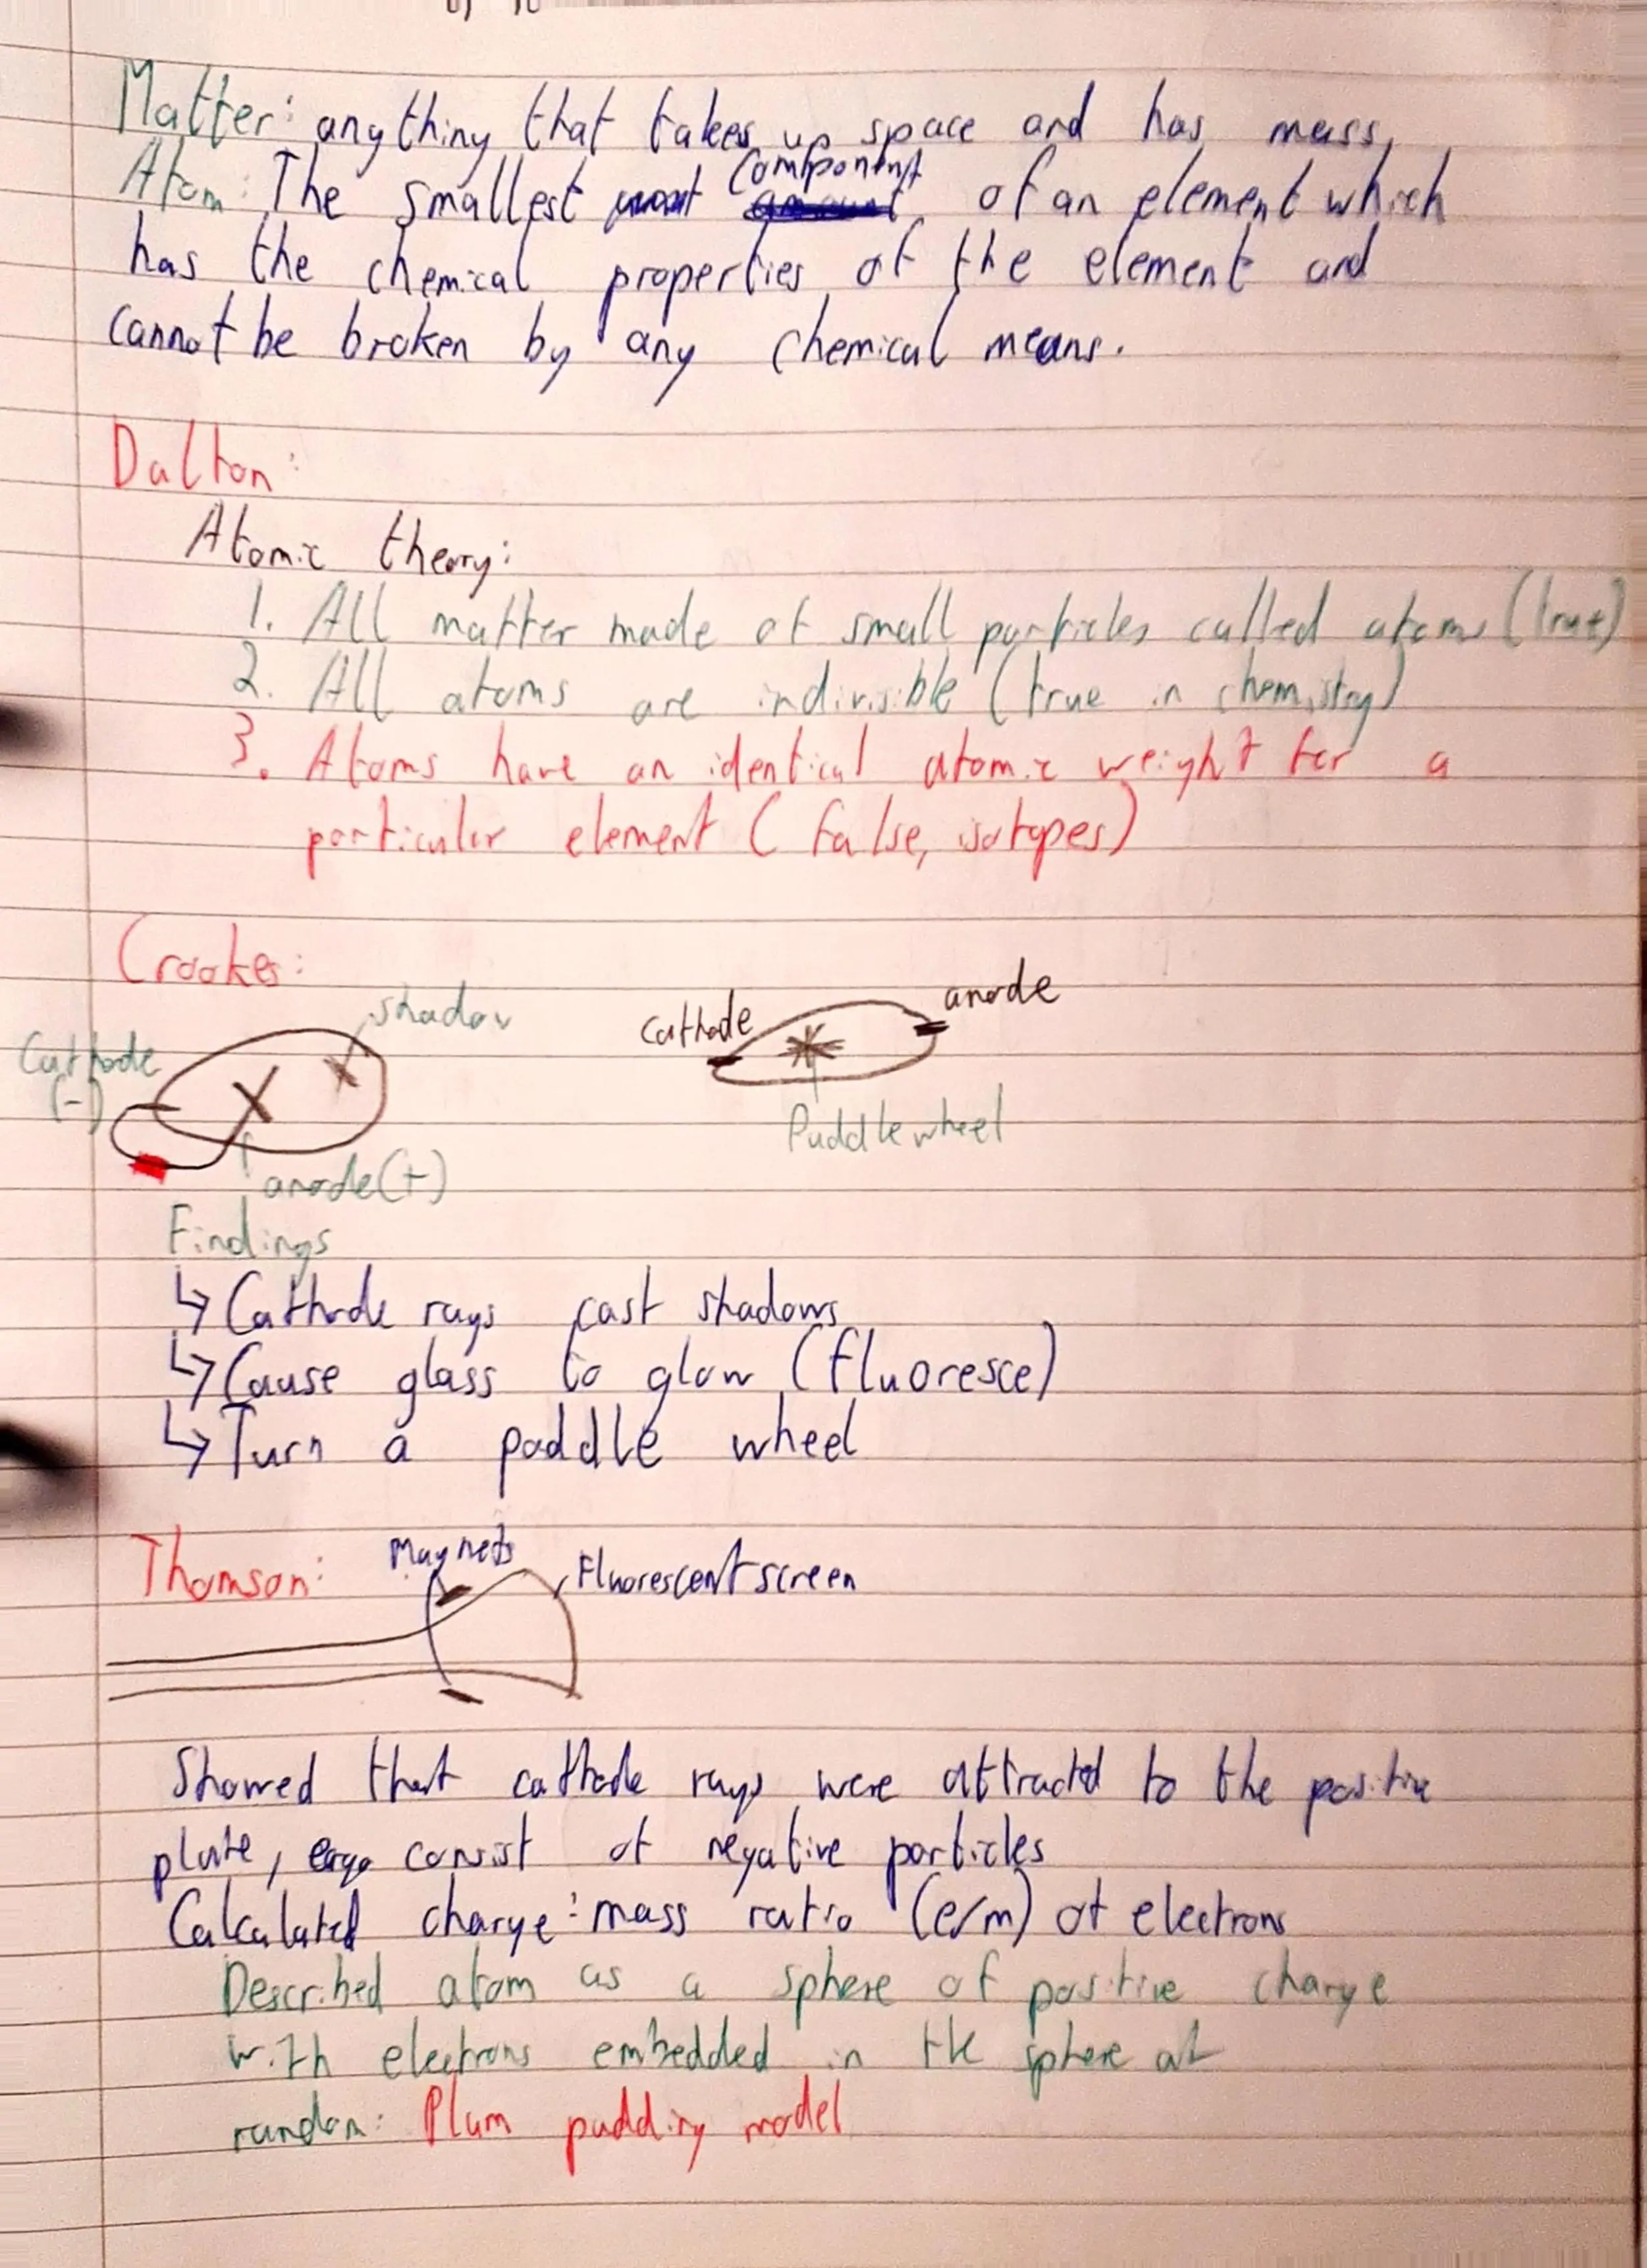 Matter: anything that takes up space and has mass,
Atom: The smallest component of an element which
has the chemical properties of the element and
cannot be broken by any chemical means.
Dalton:
Atomic theory:
1. All matter made of small particles called atoms (true)
2. All atoms are indivisible (true in chemistry)
3. Atoms have an identical atomic weight for a
particular element (false, isotopes)
Crookes:
shadow
Cathode
(-)
anode(+)
Cathode
anode
Paddle wheel
Findings
↳ Cathode rays cast shadows
↳ Cause glass to glow (fluoresce)
↳ Turn a paddle wheel
Thomson:
Magnets
Fluorescent screen
Showed that cathode rays were attracted to the positive
plate, ergo consist of negative particles
Calculated charge:mass ratio (e/m) of electrons
Described atom as a sphere of positive charge
with electrons embedded in the sphere at
random: Plum pudding model